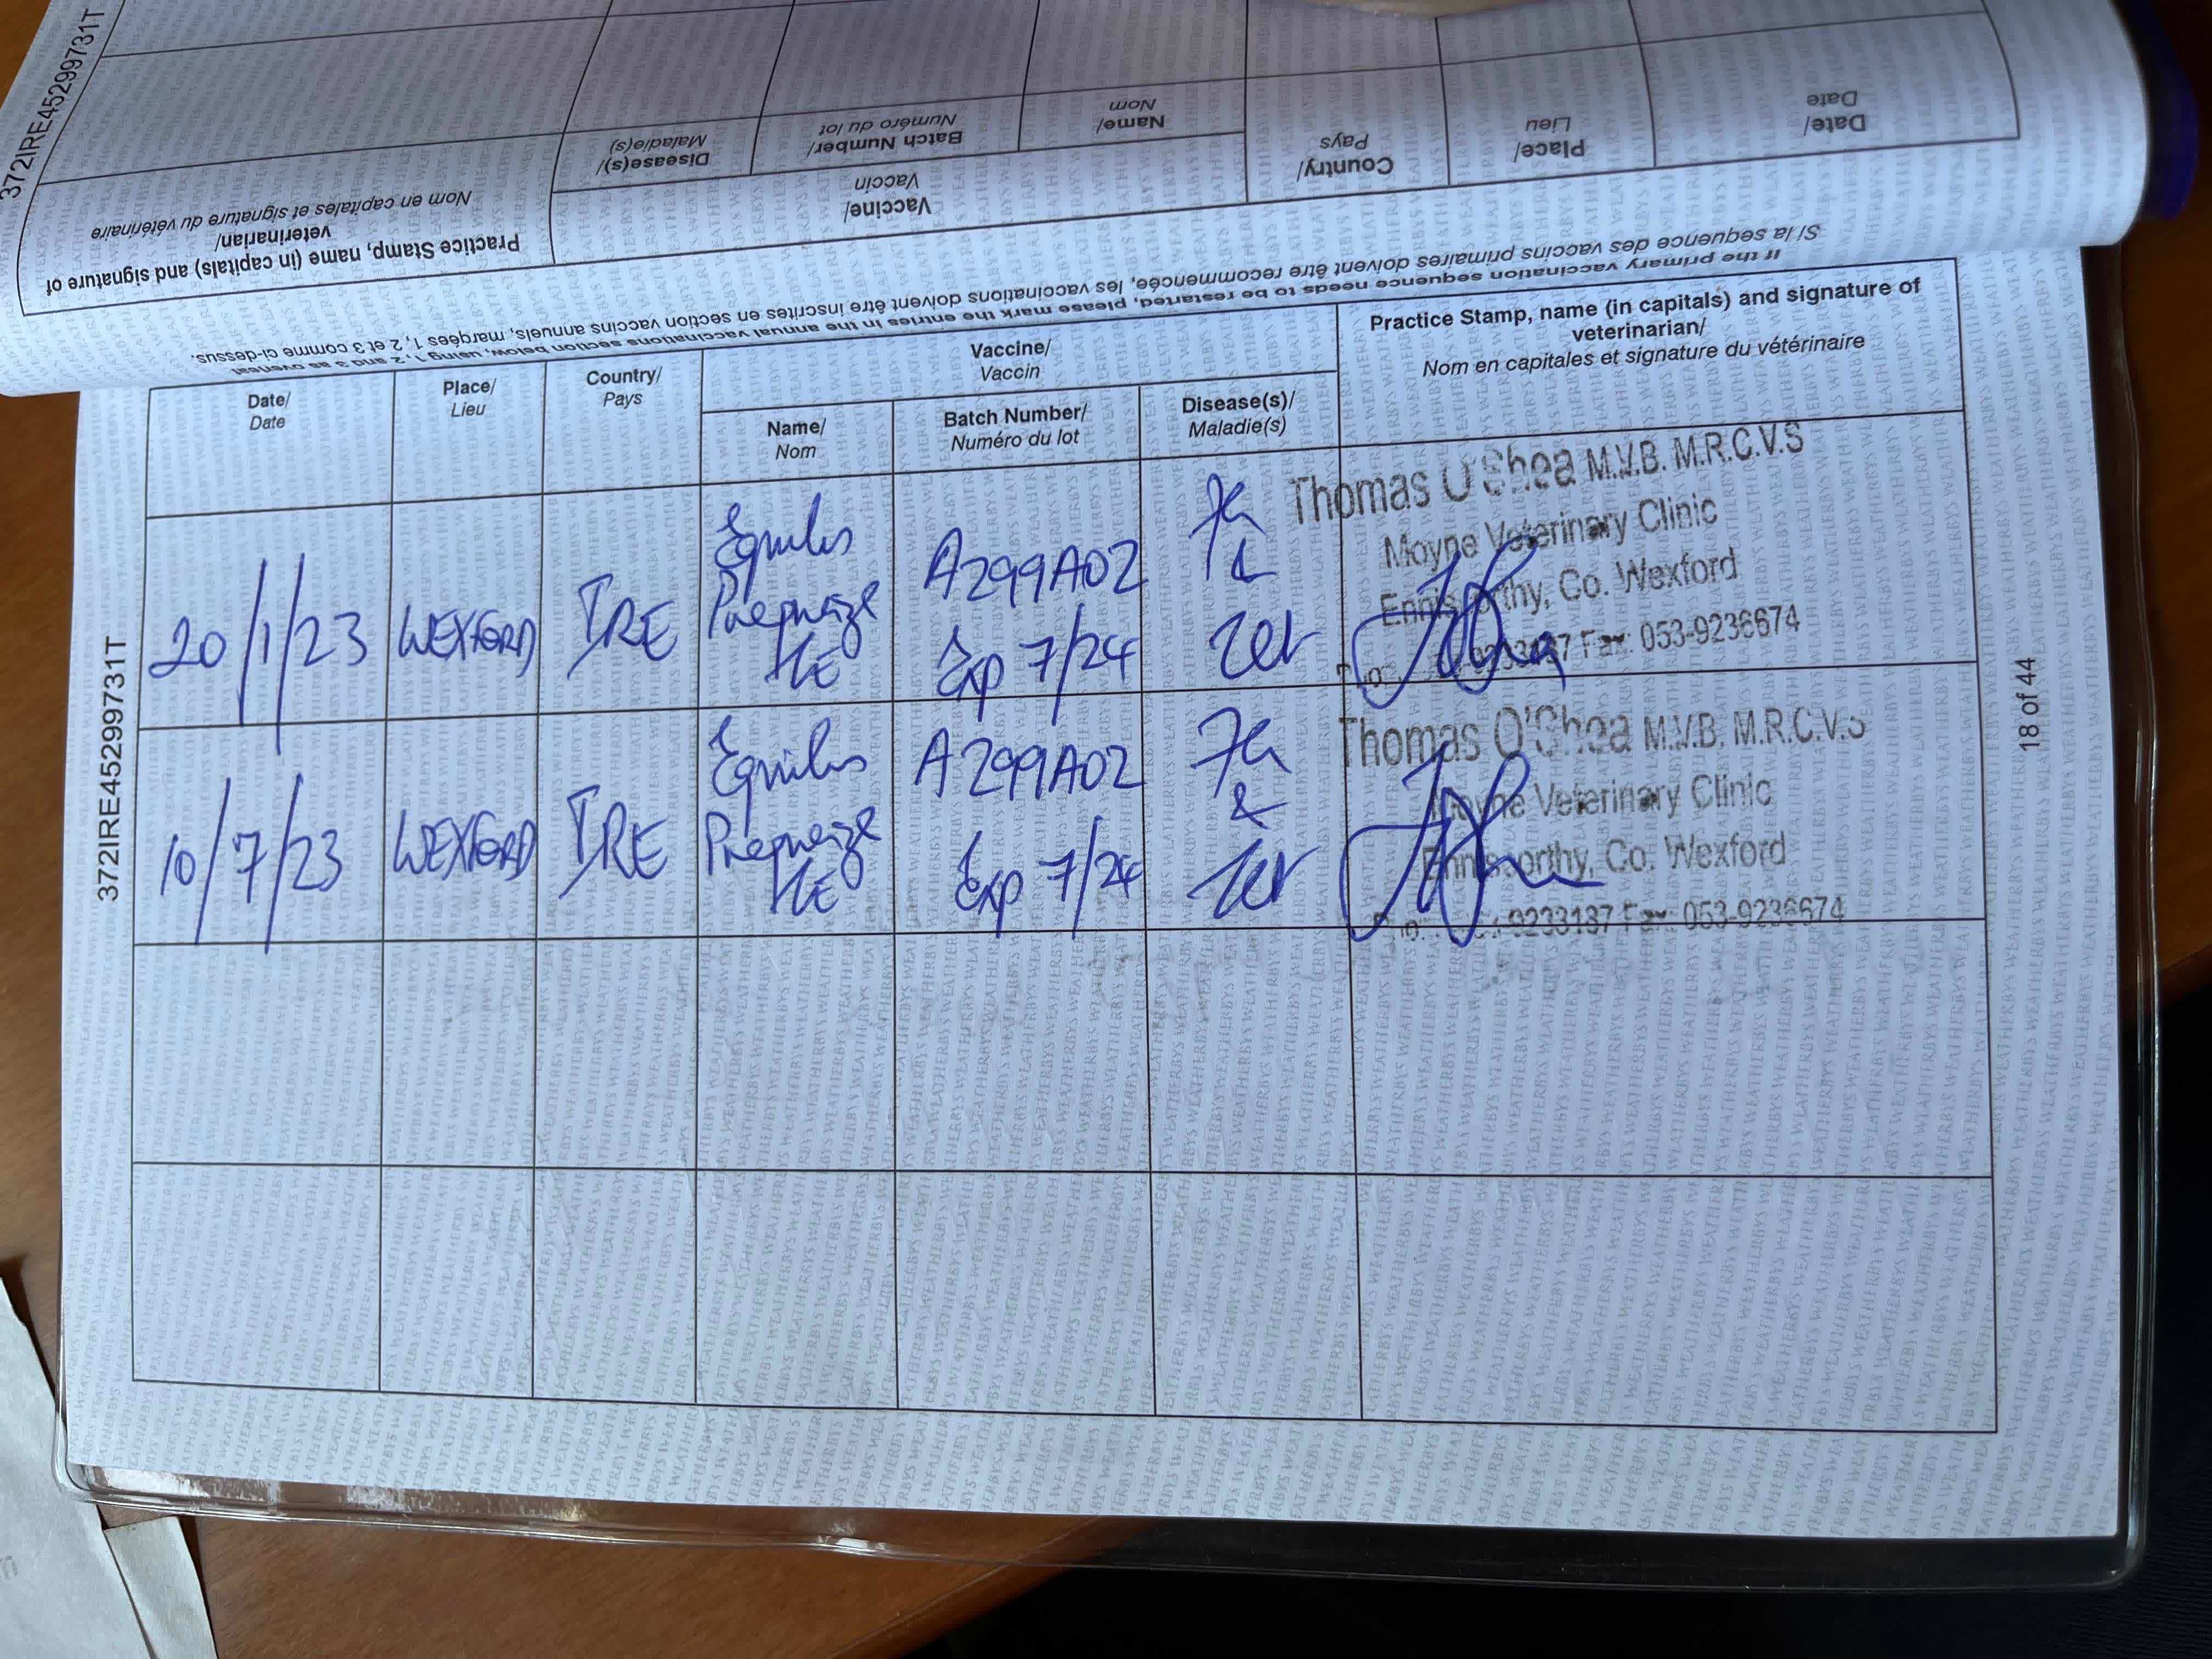 372IRE45299731T
Practice Stamp, name (in capitals) and signature of
veterinarian/
Nom en capitales et signature du vétérinaire
Vaccine/
Vaccin
Disease(s)/
Maladie(s)
Batch Number/
Numéro du lot
Name/
Nom
Country/
Pays
Place/
Lieu
Date/
Date
If the primary vaccination sequence needs to be restarted, please mark the entries in the annual vaccinations section below, using 1, 2 and 3 as overleaf
Si la sequence des vaccins primaires doivent être recommencée, les vaccinations doivent être inscrites en section vaccins annuels, marqées 1, 2 et 3 comme ci-dessus.
Date/
Date
Place/
Lieu
Country/
Pays
Vaccine/
Vaccin
Name/
Nom
Batch Number/
Numéro du lot
Disease(s)/
Maladie(s)
Practice Stamp, name (in capitals) and signature of
veterinarian/
Nom en capitales et signature du vétérinaire
20/1/23
WEXFORD
IRE
Equilis
Prequenza
TE
A299A02
Exp 7/24
Flu
&
Tet
Thomas O'Shea M.V.B. M.R.C.V.S
Moyne Veterinary Clinic
Enniscorthy, Co. Wexford
9233137 Fax: 053-9236674
10/7/23
WEXFORD
IRE
Equilis
Prequenza
TE
A299A02
Exp 7/24
Flu
&
Tet
Thomas O'Shea M.V.B. M.R.C.V.S
Moyne Veterinary Clinic
Enniscorthy, Co. Wexford
9233137 Fax: 053-9236674
372IRE45299731T
18 of 44